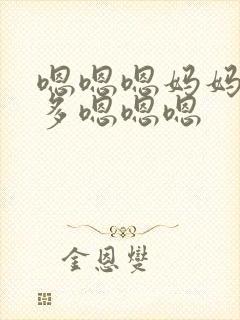 嗯嗯嗯妈妈
多嗯嗯嗯
金恩燮